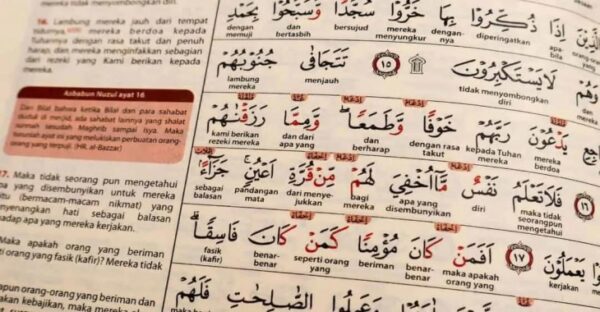 menyombongkan diri.
16. Lambung mereka jauh dari tempat
tidurnya, mereka berdoa kepada
Tuhannya dengan rasa takut dan penuh
harap, dan mereka menginfakkan sebagian
dari rezeki yang Kami berikan kepada
mereka.
Asbabun Nuzul ayat 16
Dari Bilal bahwa ketika Bilal dan para sahabat
duduk di mesjid, ada sahabat lainnya yang shalat
sunnah sesudah Maghrib sampai Isya. Maka
turunlah ayat ini yang melukiskan perbuatan
orang yang terpuji. (HR. al-Bazzar)
17. Maka tidak seorang pun mengetahui
apa yang disembunyikan untuk mereka
(bermacam-macam nikmat) yang
menyenangkan hati sebagai balasan
terhadap apa yang mereka kerjakan.
Maka apakah orang yang beriman
orang yang fasik (kafir)? Mereka tidak
orang-orang yang beriman dan
kan kebajikan, maka mereka
الَّذِيْنَ اِذَا ذُكِّرُوْا بِهَا خَرُّوْا سُجَّدًا وَّسَبَّحُوْا بِحَمْدِ
orang yang apabila diperingatkan dengannya mereka menyungkur bersujud dan bertasbih dengan memuji
وَهُمْ لَا يَسْتَكْبِرُوْنَ ۩ ١٥ تَتَجَافٰى جُنُوْبُهُمْ
dan mereka tidak menyombongkan diri menjauh lambung mereka
يَدْعُوْنَ رَبَّهُمْ خَوْفًا وَّطَمَعًا وَّمِمَّا رَزَقْنٰهُمْ
mereka berdoa kepada Tuhan mereka dengan rasa takut dan berharap dan dari apa yang kami berikan rezeki mereka
١٦ فَلَا تَعْلَمُ نَفْسٌ مَّآ اُخْفِيَ لَهُمْ مِّنْ قُرَّةِ اَعْيُنٍ جَزَاۤءً
maka tidak seorangpun mengetahui diri apa yang disembunyikan bagi mereka dari menyejukkan pandangan mata sebagai balasan
يَعْمَلُوْنَ ١٧ اَفَمَنْ كَانَ مُؤْمِنًا كَمَنْ كَانَ فَاسِقًا
kerjakan maka apakah orang yang benar-benar beriman seperti orang yang benar-benar fasik (kafir)
وَعَمِلُوا الصّٰلِحٰتِ فَلَهُمْ